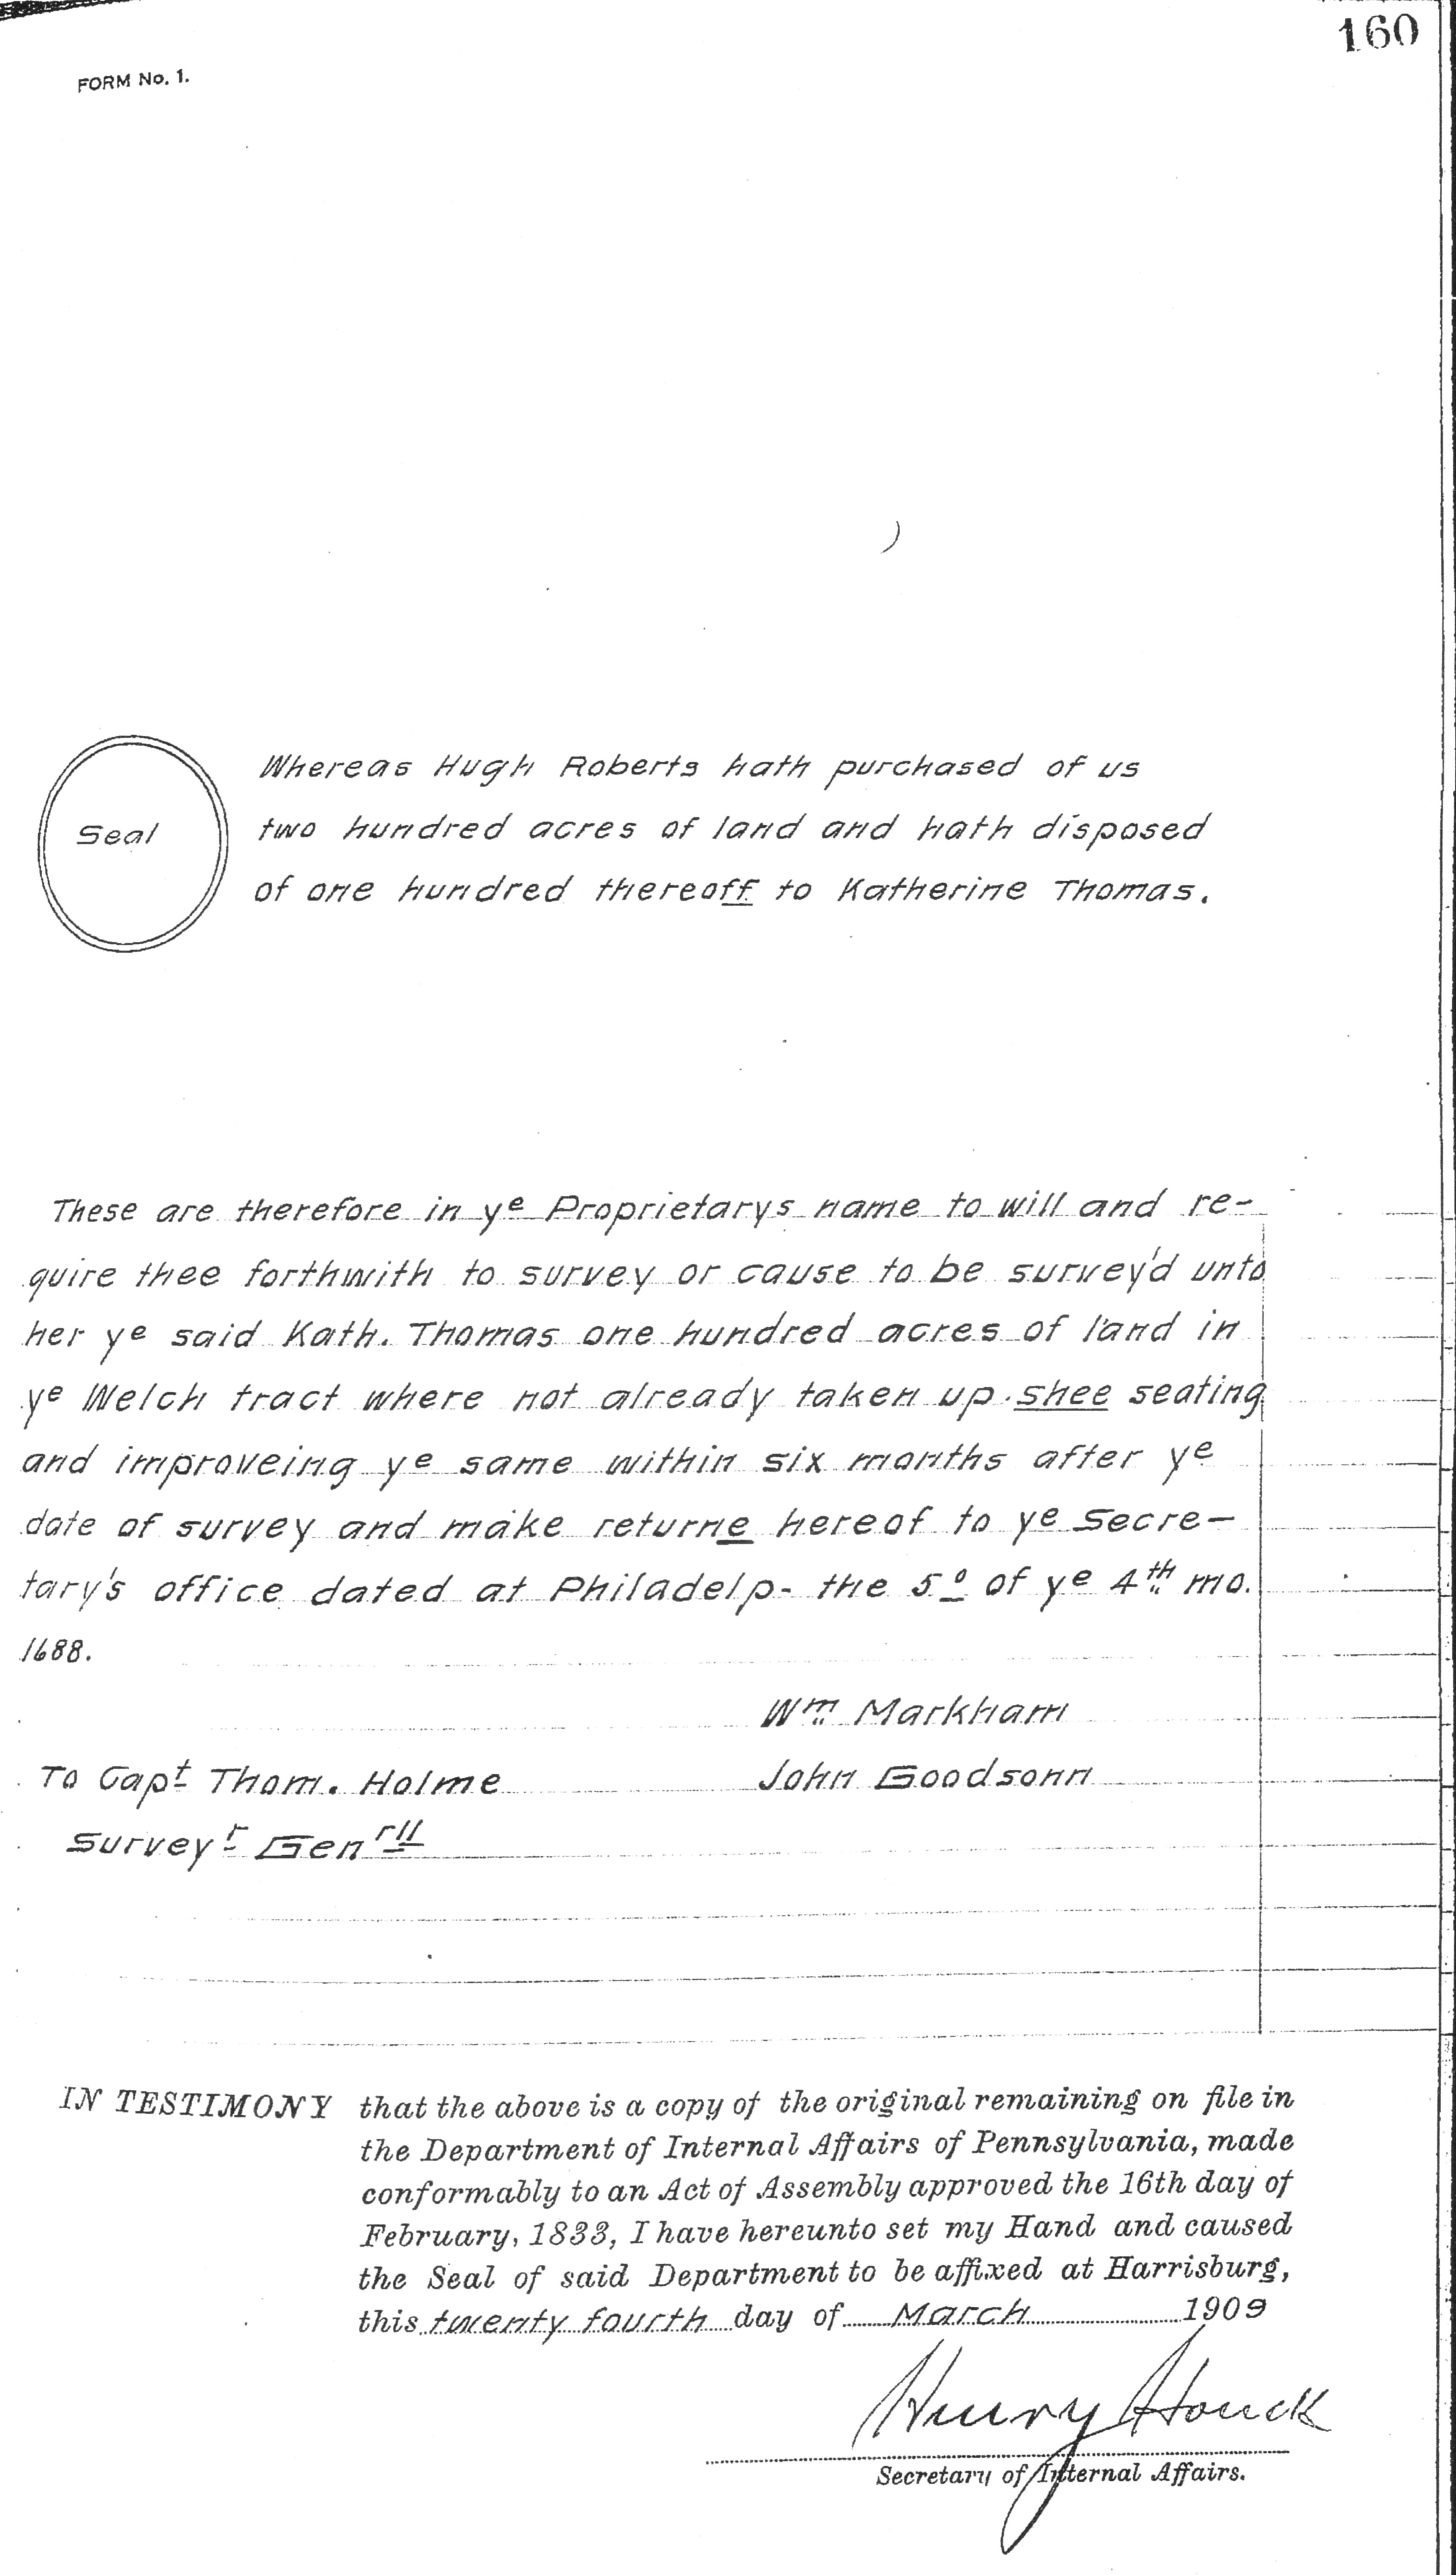 160
FORM No. 1.
Whereas Hugh Roberts hath purchased of us
Seal
two hundred acres of land and hath disposed
of one hundred thereoff to Katherine Thomas.
These are therefore in ye Proprietarys name to will and re-
quire thee forthwith to survey or cause to be survey'd unto
her ye said Kath. Thomas one hundred acres of land in
ye Welch tract where not already taken up shee seating
and improveing ye same within six months after ye
date of survey and make returne hereof to ye Secre-
tary's office dated at Philadelp- the 5º of ye 4th mo.
1688.
Wm Markham
To Capt Thom. Holme John Goodsonn
Surveyr Genrll
IN TESTIMONY that the above is a copy of the original remaining on file in
the Department of Internal Affairs of Pennsylvania, made
conformably to an Act of Assembly approved the 16th day of
February, 1833, I have hereunto set my Hand and caused
the Seal of said Department to be affixed at Harrisburg,
this twenty fourth day of March 1909
Henry Houck
Secretary of Internal Affairs.